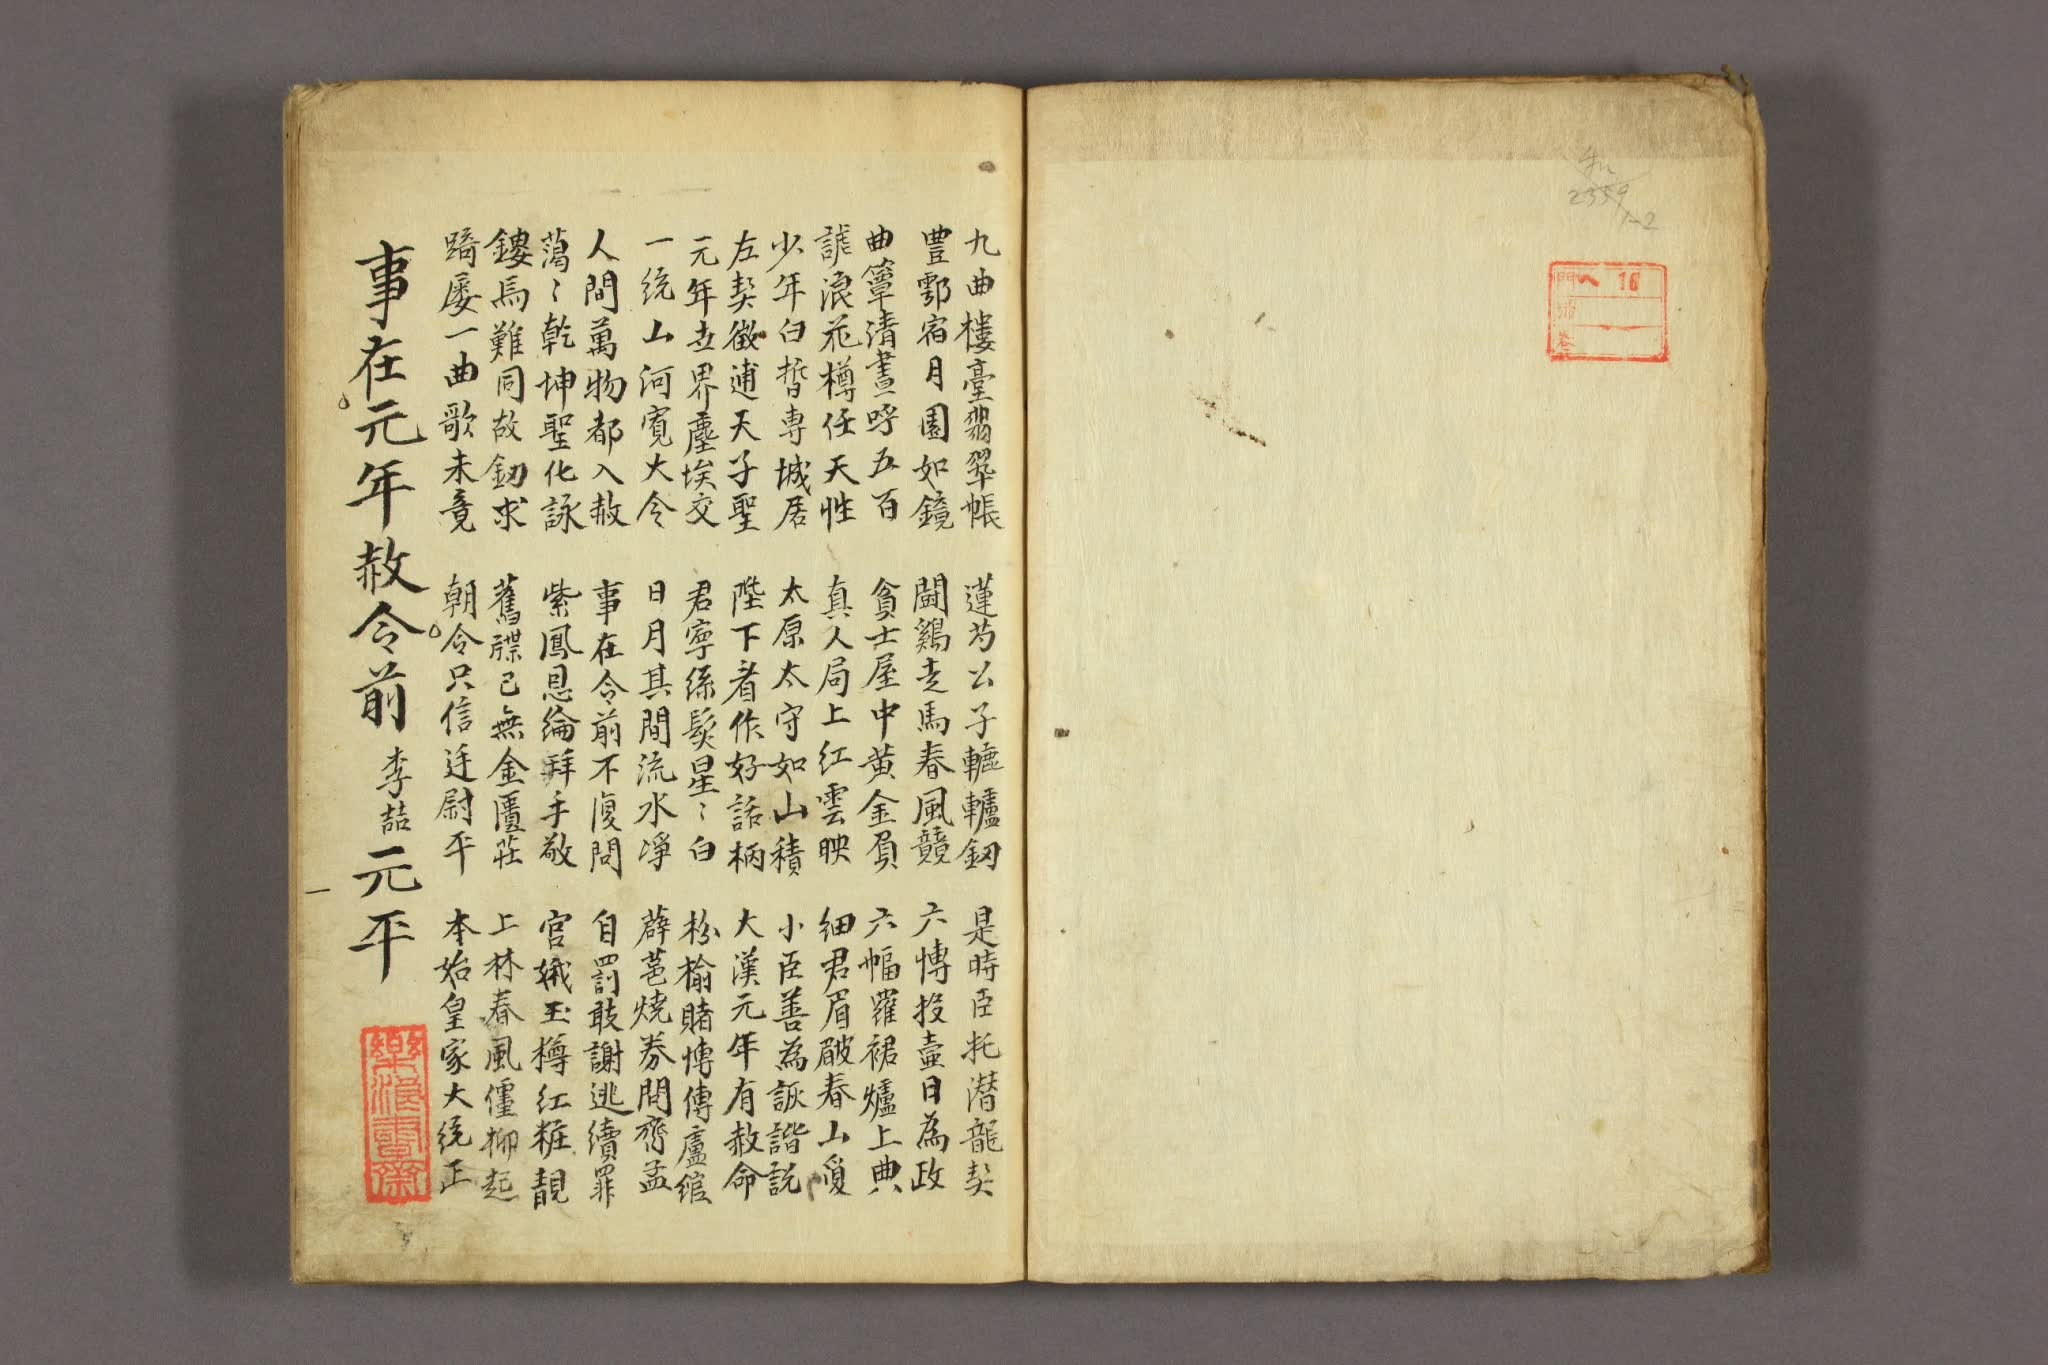 九曲樓臺翡翠帳 蓮芍公子轆轤釰 是時臣托潛龍契
豊鄠宿月圓如鏡 鬪鷄走馬春風競 六愽投壺日為政
曲簟清晝呼五百 貧士屋中黃金負 六幅羅裙爐上典
謔浪花樽任天性 真人局上紅雲映 細君眉皺春山夐
少年白晳專城居 太原太守如山積 小臣善為詼諧説
左契徵逋天子聖 陛下看作好話柄 大漢元年有赦命
元年世界塵埃交 君寧係髮星〻白 枌榆賭愽傳盧綰
一統山河寬大令 日月其間流水凈 薛邑燒券問齊孟
人間萬物都入赦 事在令前不復問 自罰敢謝逃續罪
蕩〻乾坤聖化詠 紫鳳恩綸拜手敬 官娥玉樽紅粧靚
鏤馬難同故釰求 舊牒已無金匱莊 上林春風僵柳起
踦屨一曲歌未竟 朝令只信廷尉平 本始皇家大統正
事在元年赦令前 李喆 元平
樂浪書齋
門 ヘ 16
號
卷
2359
1-2